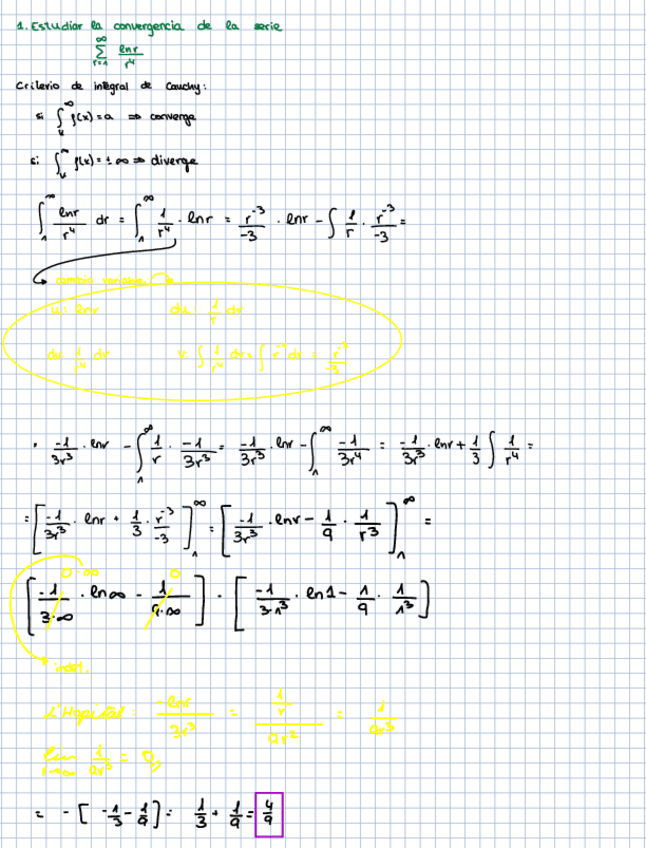 1. Estudiar la convergencia de la serie
∞ Σ r=1 lnr / r⁴
Criterio de integral de Cauchy:
si ∫ₖ^∞ f(x) = a ⇒ converge
si ∫ₖ^∞ f(x) = ±∞ ⇒ diverge
∫₁^∞ lnr/r⁴ dr = ∫₁^∞ 1/r⁴ · lnr = r⁻³/-3 · lnr - ∫ 1/r · r⁻³/-3 =
cambio variable:
u: lnr du: 1/r dr
dv: 1/r⁴ dr v: ∫ 1/r⁴ dr = ∫ r⁻⁴ dr = r⁻³/-3
· -1/3r³ · lnr - ∫₁^∞ 1/r · -1/3r³ = -1/3r³ · lnr - ∫₁^∞ -1/3r⁴ = -1/3r³ · lnr + 1/3 ∫ 1/r⁴ =
= [-1/3r³ · lnr + 1/3 · r⁻³/-3]₁^∞ = [-1/3r³ · lnr - 1/9 · 1/r³]₁^∞ =
0·∞ 0
[-1/3·∞ · ln∞ - 1/9·∞] - [-1/3·1³ · ln1 - 1/9 · 1/1³]
indet.
L'Hopital: -lnr/3r³ = 1/r / 9r² = 1/9r³
lim r→∞ 1/9r³ = 0
= - [-1/3 - 1/9] = 1/3 + 1/9 = 4/9